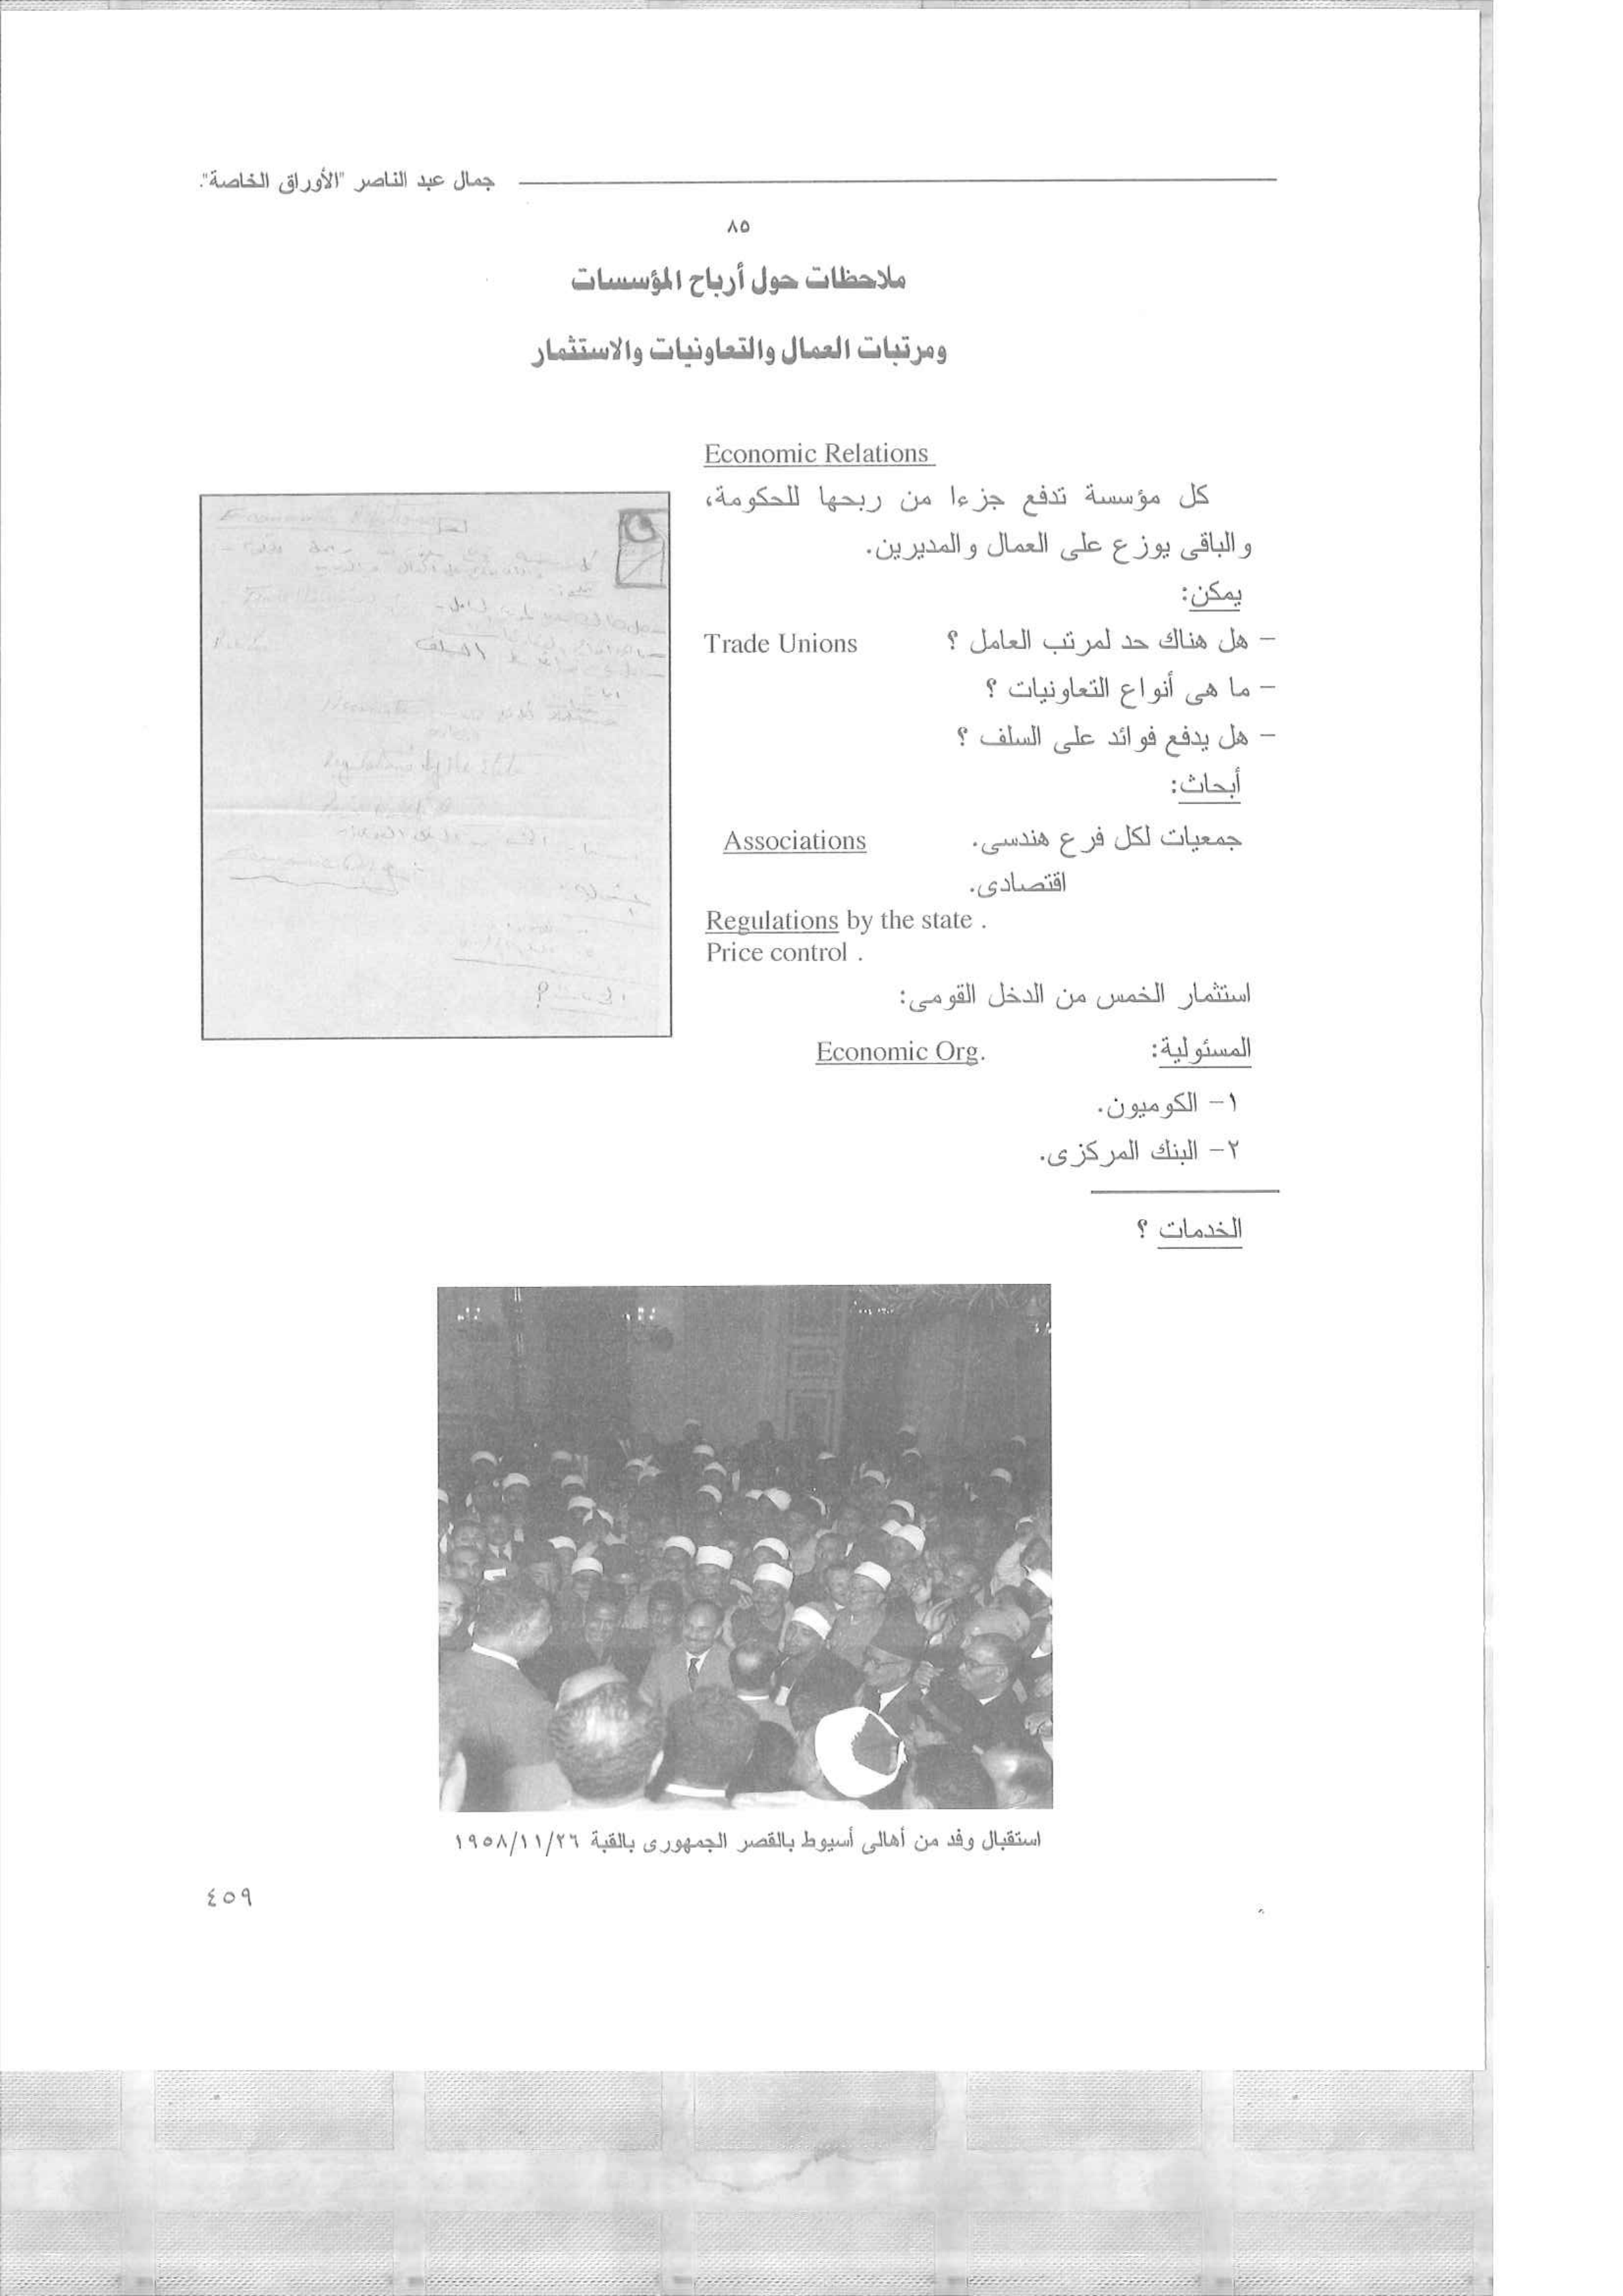 جمال عبد الناصر "الأوراق الخاصة".
٨٥
ملاحظات حول أرباح المؤسسات
ومرتبات العمال والتعاونيات والاستثمار
Economic Relations
كل مؤسسة تدفع جزءا من ربحها للحكومة،
والباقى يوزع على العمال والمديرين.
يمكن:
– هل هناك حد لمرتب العامل ؟ Trade Unions
– ما هى أنواع التعاونيات ؟
– هل يدفع فوائد على السلف ؟
أبحاث:
جمعيات لكل فرع هندسى. Associations
اقتصادى.
Regulations by the state .
Price control .
استثمار الخمس من الدخل القومى:
المسئولية: Economic Org.
١– الكوميون.
٢– البنك المركزى.
الخدمات ؟
استقبال وفد من أهالى أسيوط بالقصر الجمهورى بالقبة ١٩٥٨/١١/٢٦
٤٥٩